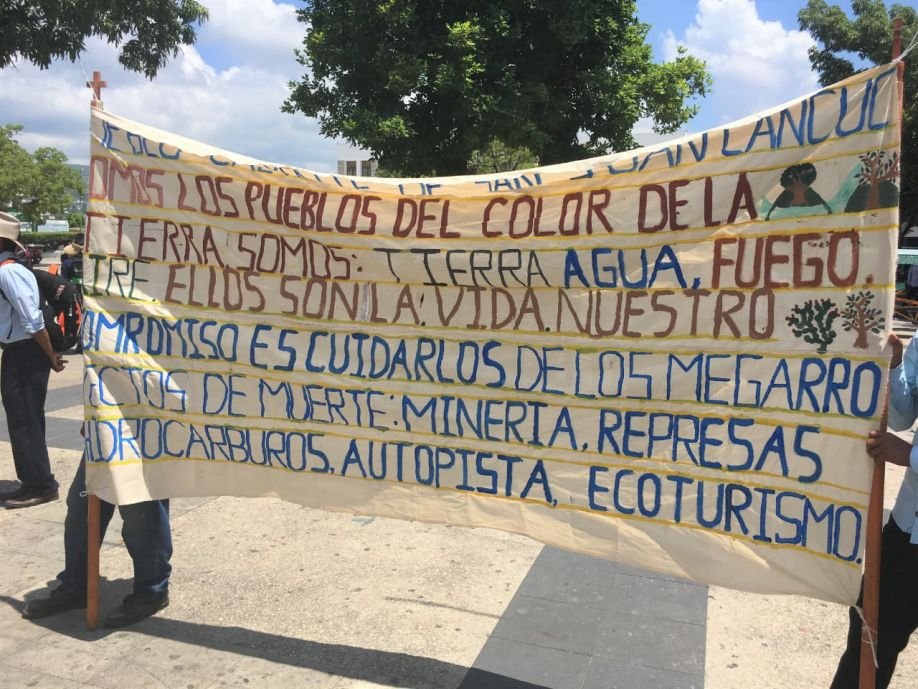 DE SAN JUAN CANCUC
OMOS LOS PUEBLOS DEL COLOR DE LA
TIERRA. SOMOS: TIERRA AGUA, FUEGO.
TRE ELLOS SON LA VIDA. NUESTRO
OMPROMISO ES CUIDARLOS DE LOS MEGARRO
ECTOS DE MUERTE: MINERIA, REPRESAS
HIDROCARBUROS, AUTOPISTA, ECOTURISMO.